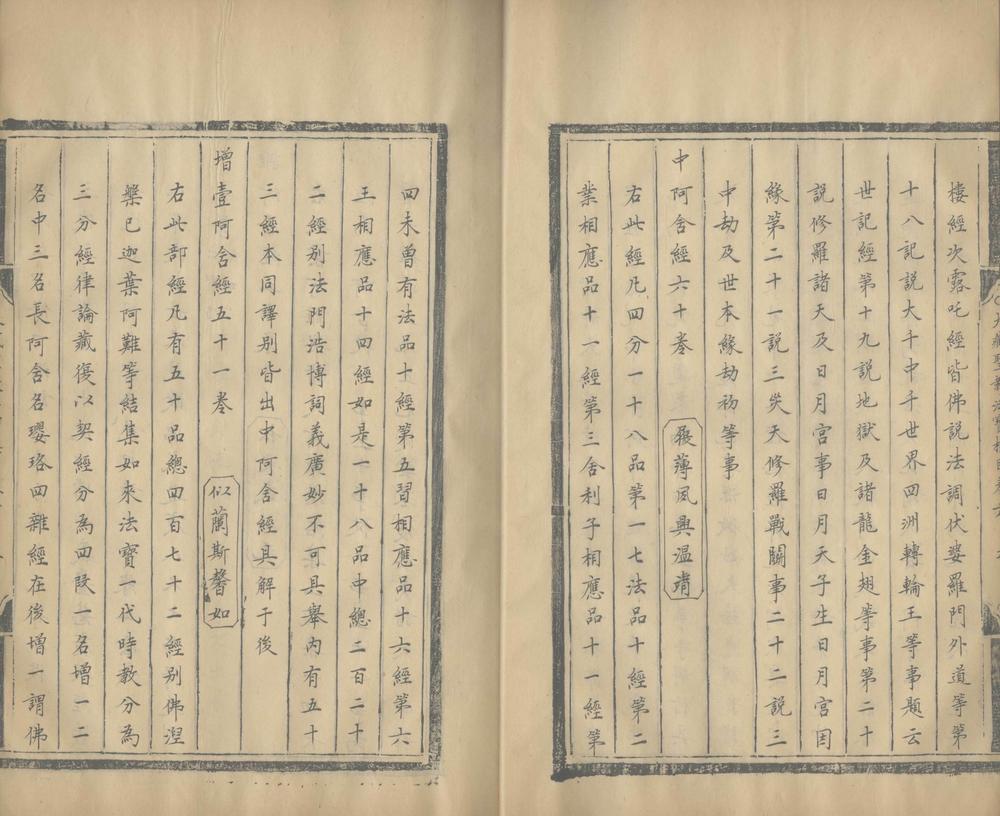 樓經次露吒經皆佛説法調伏婆羅門外道等第
十八記説大千中千世界四洲轉輪王等事題云
世記經第十九説地獄及諸龍金翅等事第二十
説修羅諸天及日月宮事日月天子生日月宮因
緣第二十一説三災天修羅戰鬭事二十二説三
中劫及世本緣劫初等事
中阿含經六十卷 履薄夙興温凊
右此經凡四分一十八品第一七法品十經第二
業相應品十一經第三舍利子相應品十一經第
四未曾有法品十經第五習相應品十六經第六
王相應品十四經如是一十八品中總二百二十
二經别法門浩博詞義廣妙不可具舉內有五十
三經本同譯别皆出中阿含經具解于後
增壹阿含經五十一卷 似蘭斯馨如
右此部經凡有五十品總四百七十二經别佛涅
槃已迦葉阿難等結集如來法寶一代時教分為
三分經律論藏復以契經分為四段一名增一二
名中三名長阿含名瓔珞四雜經在後增一謂佛